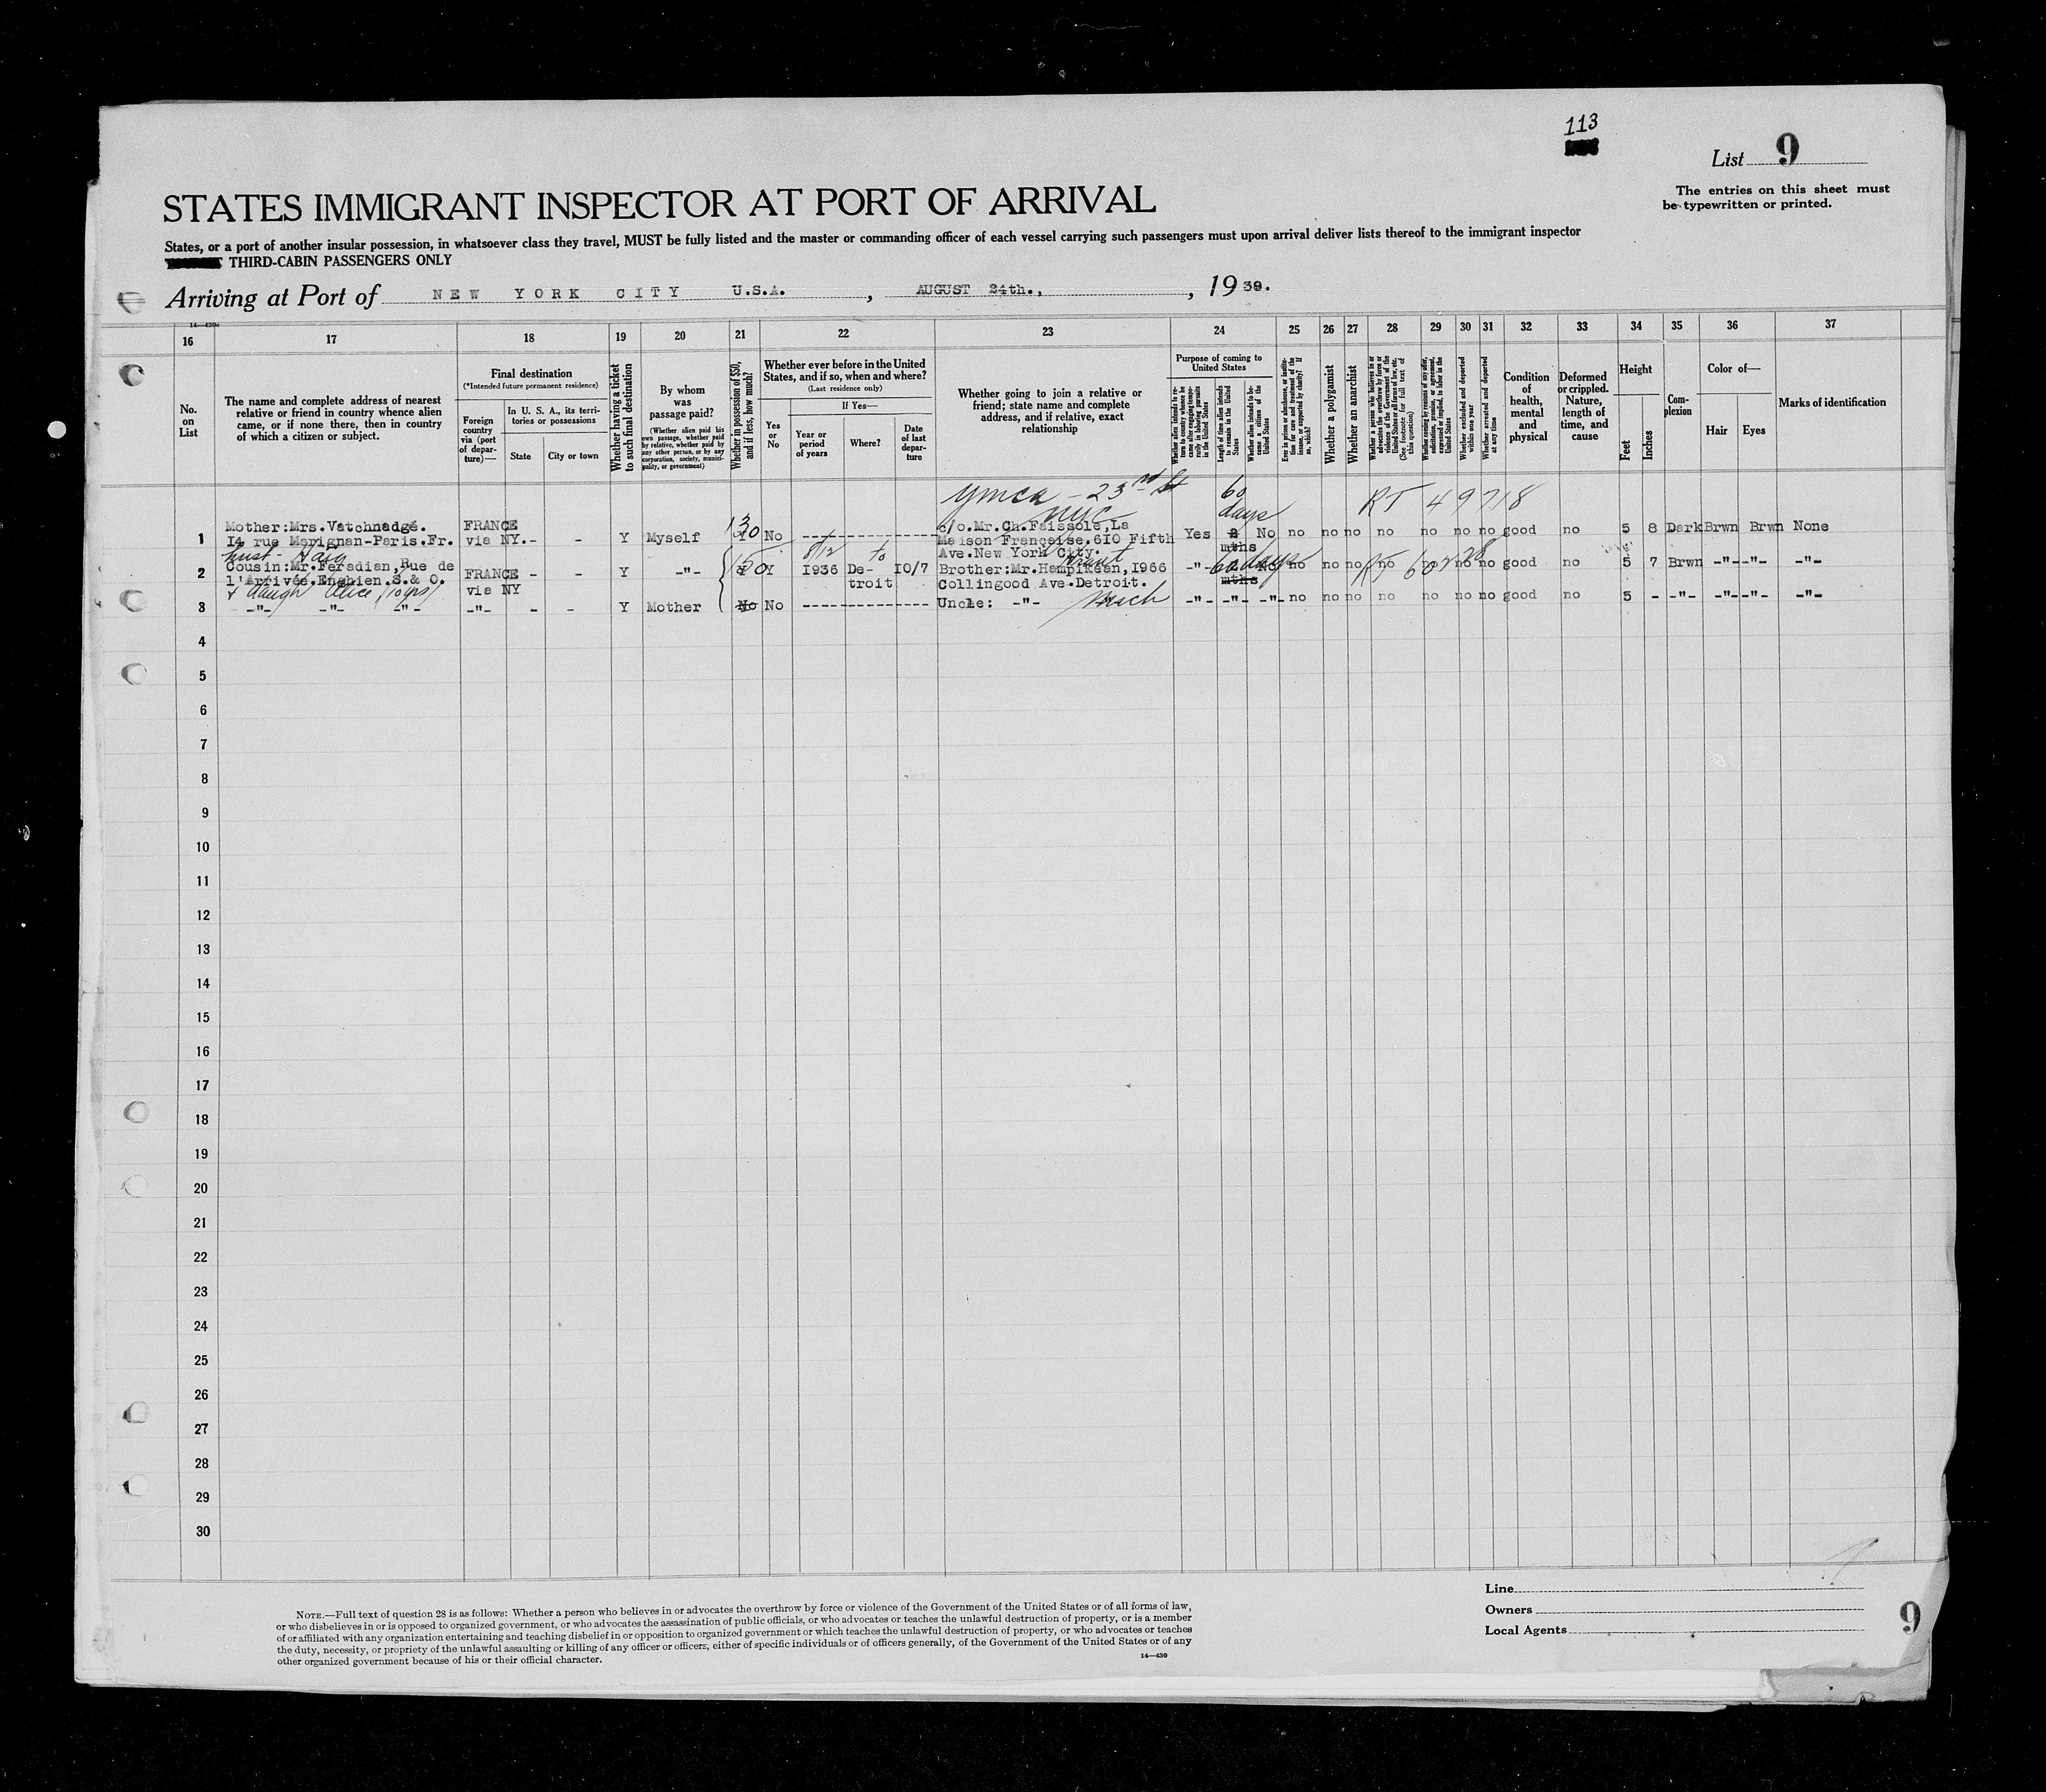 113
List 9
The entries on this sheet must
be typewritten or printed.
STATES IMMIGRANT INSPECTOR AT PORT OF ARRIVAL
States, or a port of another insular possession, in whatsoever class they travel, MUST be fully listed and the master or commanding officer of each vessel carrying such passengers must upon arrival deliver lists thereof to the immigrant inspector
THIRD-CABIN PASSENGERS ONLY
Arriving at Port of NEW YORK CITY U.S.A. , AUGUST 24th., , 1939.
14—430
16 17 18 19 20 21 22 23 24 25 26 27 28 29 30 31 32 33 34 35 36 37
No.
on
List
The name and complete address of nearest
relative or friend in country whence alien
came, or if none there, then in country
of which a citizen or subject.
Final destination
(*Intended future permanent residence)
Foreign
country
via (port
of depar-
ture)—
In U. S. A., its terri-
tories or possessions
State
City or town
Whether having a ticket
to such final destination
By whom
was
passage paid?
(Whether alien paid his
own passage, whether paid
by relative, whether paid by
any other person, or by any
corporation, society, munici-
pality, or government)
Whether in possession of $50,
and if less, how much?
Whether ever before in the United
States, and if so, when and where?
(Last residence only)
Yes
or
No
If Yes—
Year or
period
of years
Where?
Date
of last
depar-
ture
Whether going to join a relative or
friend; state name and complete
address, and if relative, exact
relationship
Purpose of coming to
United States
Whether alien intends to re-
turn to country whence he
came after engaging tempo-
rarily in laboring pursuits
in the United States
Length of time alien intends
to remain in the United
States
Whether alien intends to be-
come a citizen of the
United States
Ever in prison or almshouse, or institu-
tion for care and treatment of the
insane, or supported by charity? If
so, which?
Whether a polygamist
Whether an anarchist
Whether a person who believes in or
advocates the overthrow by force or
violence of the Government of the
United States or all forms of law, etc.
(See footnote for full text of
this question)
Whether coming by reasons of any offer,
solicitation, promise, or agreement,
expressed or implied, to labor in the
United States
Whether excluded and deported
within one year
Whether arrested and deported
at any time
Condition
of
health,
mental
and
physical
Deformed
or crippled.
Nature,
length of
time, and
cause
Height
Feet
Inches
Com-
plexion
Color of—
Hair
Eyes
Marks of identification
Ymca - 23rd St
NYC
60
days
RT 49718
1 Mother:Mrs.Vatchnadgé.
I4 rue Marignan-Paris.Fr.
FRANCE
via NY.- - Y Myself 130 No
c/o.Mr.Ch.Faissole,La
Maison Française.6I0 Fifth
Ave.New York City.
Yes mths No no no no no no no no good no 5 8 Dark Brwn Brwn None
husb - Haig
2 Cousin:Mr.Feradian,Rue de
l'Arrivée.Enghien.S.& O.
FRANCE - - Y -"- 150 Y I936 De-
troit I0/7
via NY
8/12 to
Brother:Mr.Hampikean,I966
Collingood Ave.Detroit.
Mich
-"- 60 days mths no no no no no no no good no 5 7 Brwn -"- -"- -"-
RT 60228
& daugh Alice (10yrs)
3 -"- -"- -"- -"- - - Y Mother No No
Uncle: -"-
-"- -"- -"- no no no no no no no good no 5 - -"- -"- -"- -"-
4
5
6
7
8
9
10
11
12
13
14
15
16
17
18
19
20
21
22
23
24
25
26
27
28
29
30
NOTE.—Full text of question 28 is as follows: Whether a person who believes in or advocates the overthrow by force or violence of the Government of the United States or of all forms of law,
or who disbelieves in or is opposed to organized government, or who advocates the assassination of public officials, or who advocates or teaches the unlawful destruction of property, or is a member
of or affiliated with any organization entertaining and teaching disbelief in or opposition to organized government or which teaches the unlawful destruction of property, or who advocates or teaches
the duty, necessity, or propriety of the unlawful assaulting or killing of any officer or officers, either of specific individuals or of officers generally, of the Government of the United States or of any
other organized government because of his or their official character.
14—430
Line
Owners
Local Agents
9